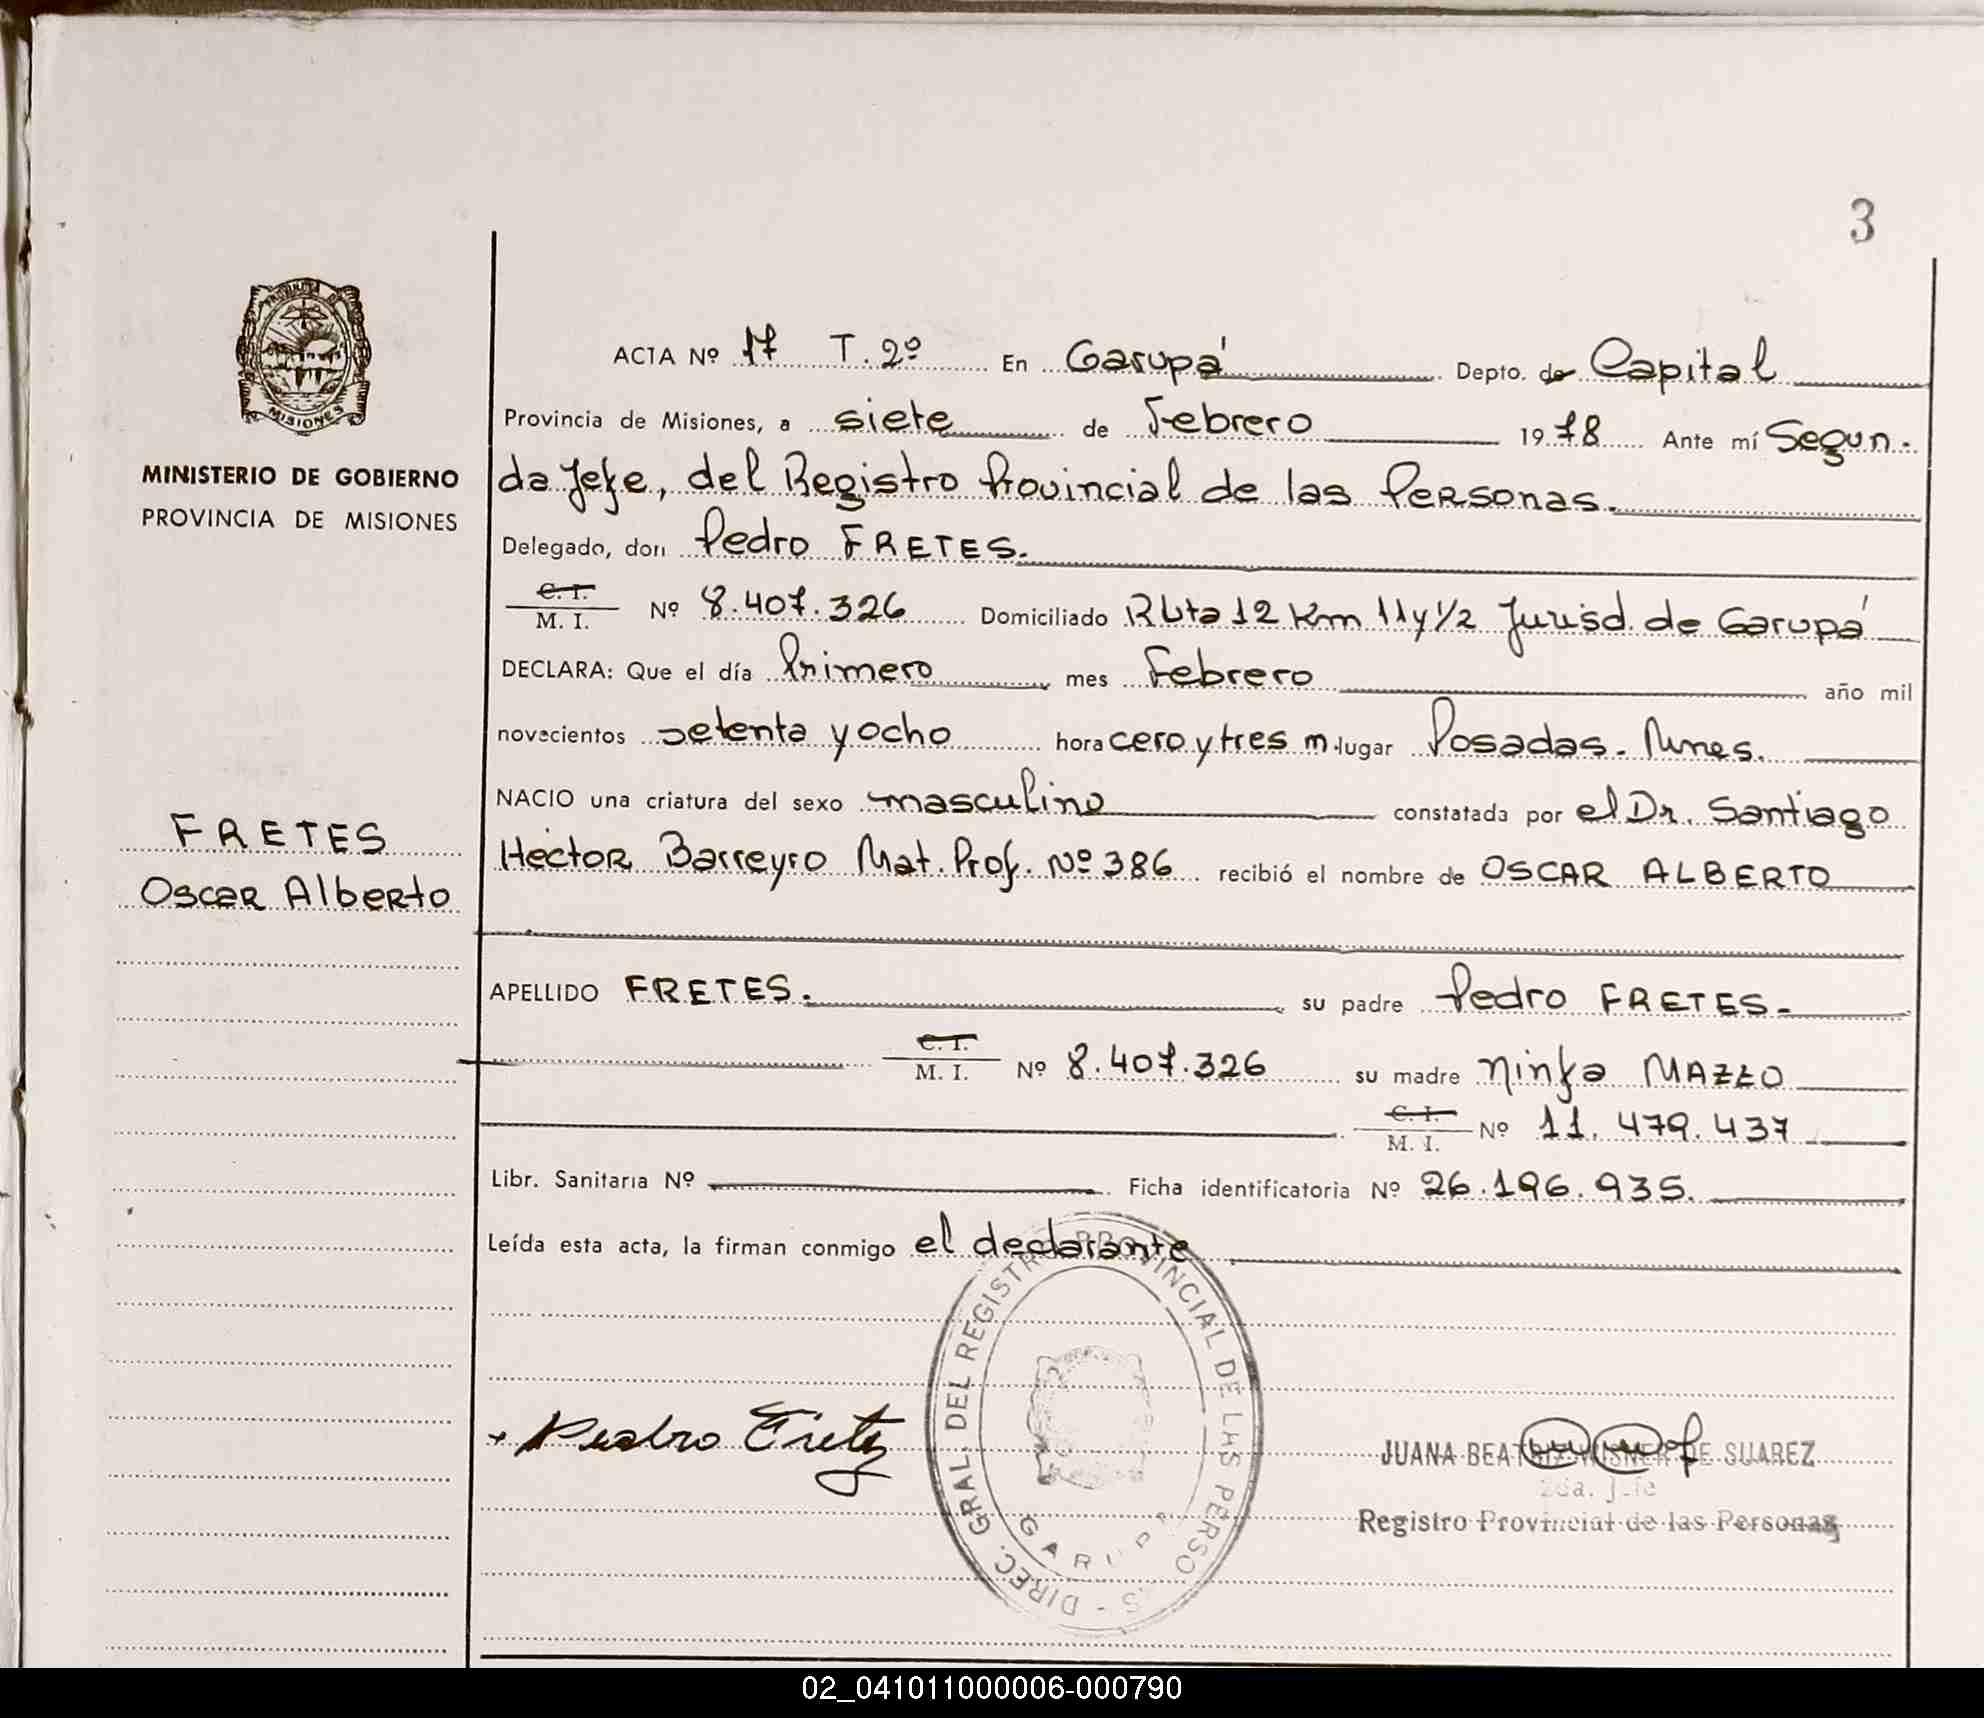 3
PROVINCIA DE
MISIONES
MINISTERIO DE GOBIERNO
PROVINCIA DE MISIONES
FRETES
Oscar Alberto
ACTA Nº 17 T. 2º En Garupá Depto. de Capital
Provincia de Misiones, a siete de Febrero 1978 Ante mí Segun-
da Jefe, del Registro Provincial de las Personas.
Delegado, don Pedro FRETES.
C. I.
M. I. Nº 8.407.326 Domiciliado Ruta 12 Km 11 y 1/2 Jurisd. de Garupá
DECLARA: Que el día Primero mes Febrero año mil
novecientos setenta y ocho hora cero y tres m. lugar Posadas. Mnes.
NACIO una criatura del sexo masculino constatada por el Dr. Santiago
Héctor Barreyro Mat. Prof. Nº 386 recibió el nombre de OSCAR ALBERTO
APELLIDO FRETES. su padre Pedro FRETES.
C. I.
M. I. Nº 8.407.326 su madre Ninfa MAZZO
C. I.
M. I. Nº 11.479.437
Libr. Sanitaria Nº Ficha identificatoria Nº 26.196.935.
Leída esta acta, la firman conmigo el declarante
DIREC. GRAL. DEL REGISTRO PROVINCIAL DE LAS PERSONAS -
GARUPA
Pedro Fretes
JUANA BEATRIZ WISNER DE SUAREZ
2da. Jefe
Registro Provincial de las Personas
02_041011000006-000790